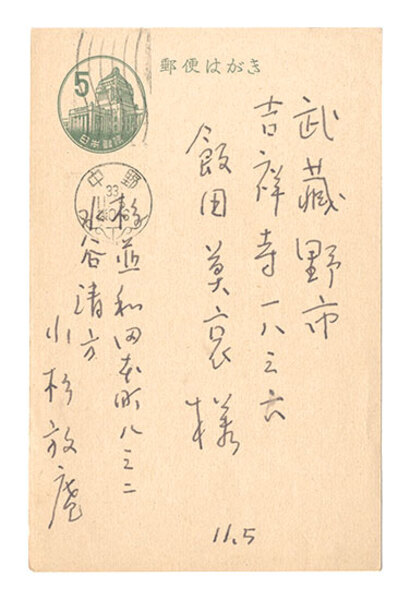 郵便はがき
5
日本郵便
中野
33
武蔵野市
吉祥寺一八三六
飯田莫哀様
杉並和田本町八三二
水谷清方
小杉放庵
11.5